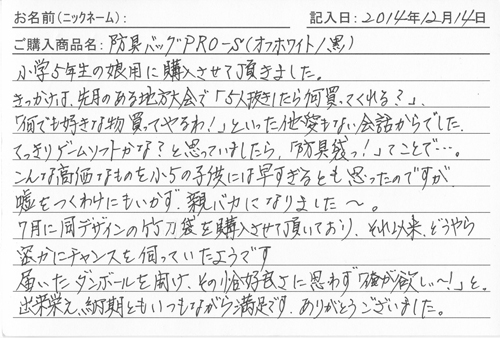 お名前(ニックネーム): 記入日:2014年12月14日
ご購入商品名:防具バッグPRO-S(オフホワイト/黒)
小学5年生の娘用に購入させて頂きました。
きっかけは、先月のある地方大会で「5人抜きしたら何買ってくれる?」、
「何でも好きな物買ってやるわ!」といった他愛もない会話からでした。
てっきりゲームソフトかな?と思っていましたら、「防具袋っ!」てことで…。
こんな高価なものを小5の子供には早すぎるとも思ったのですが
嘘をつくわけにもいかず、親バカになりました〜。
7月に同デザインの竹刀袋を購入させて頂いており、それ以来、どうやら
密かにチャンスを伺っていたようです
届いたダンボールを開け、その恰好良さに思わず「俺が欲しい〜!」と。
出来栄え、納期ともいつもながら満足です。ありがとうございました。